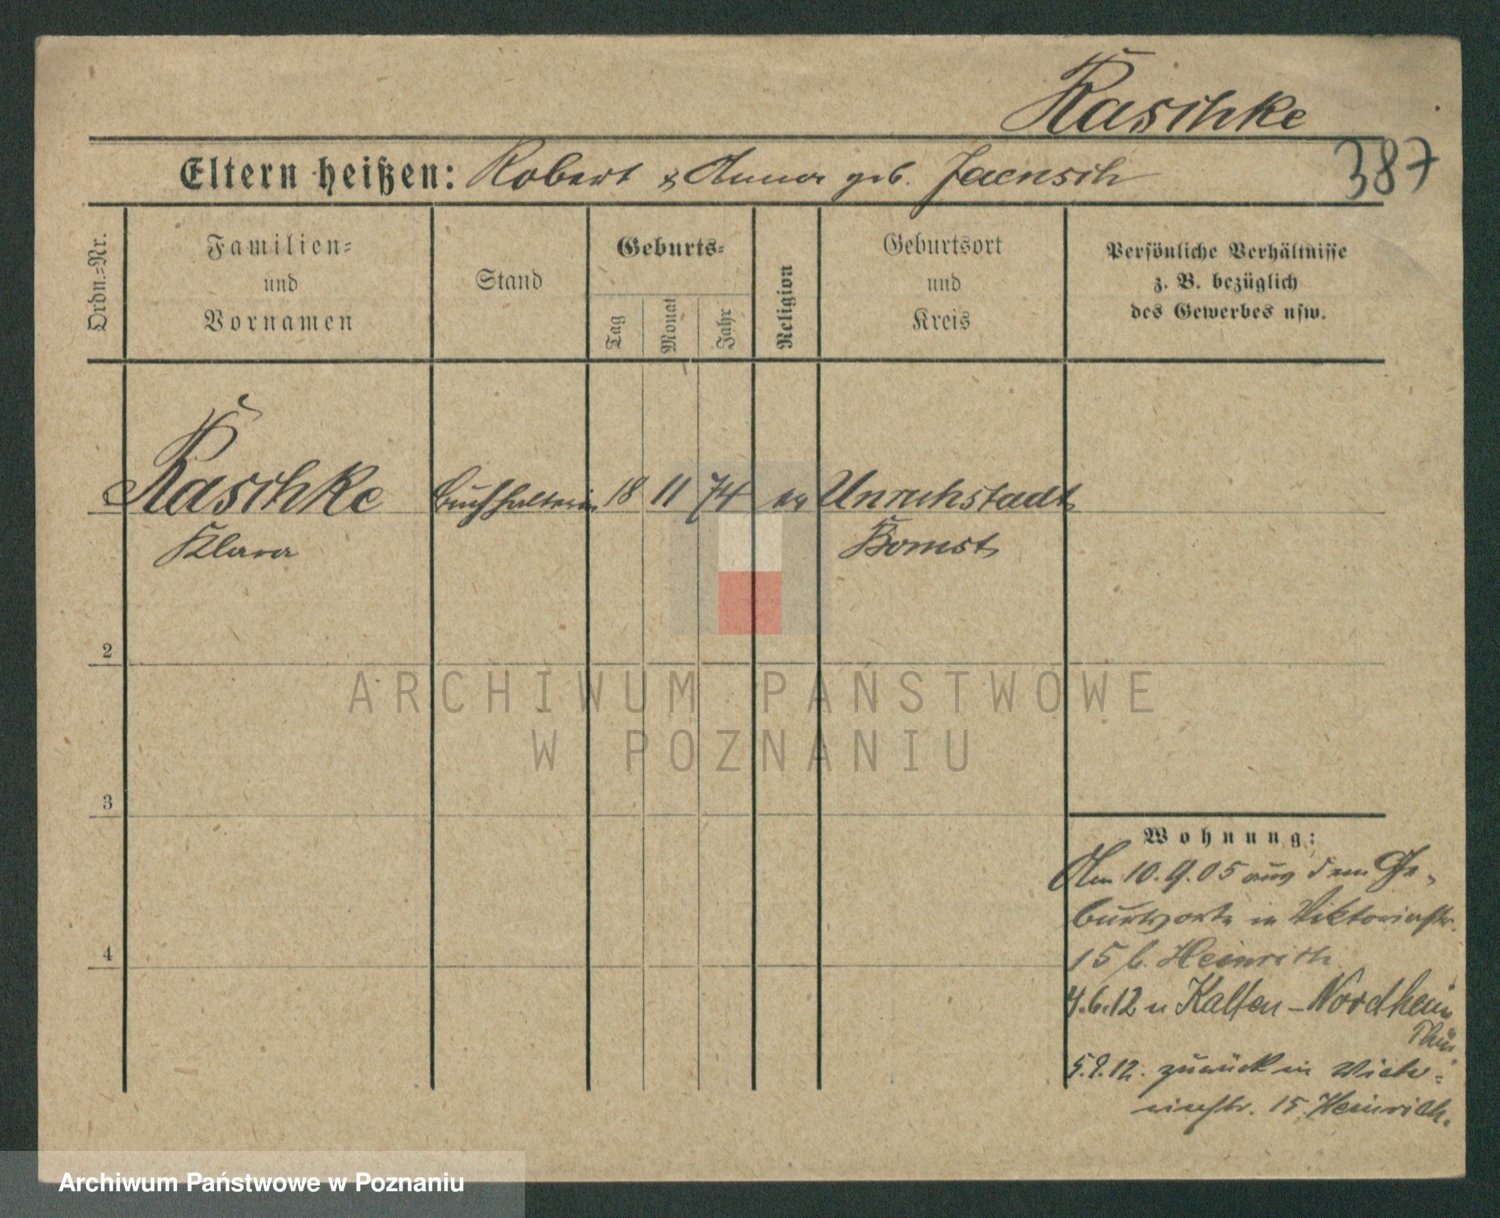 Raschke
Eltern heißen: Robert & Anna geb. Jaensch
387
Ordn.=Nr.
Familien=
und
Vornamen
Stand
Geburts=
Tag
Monat
Jahr
Religion
Geburtsort
und
Kreis
Persönliche Verhältnisse
z. B. bezüglich
des Gewerbes usw.
Raschke Buchhalterin 18 11 74 ev Unruhstadt
Klara Bomst
2
3
4
Wohnung:
Am 10.9.05 aus dem Ge-
burtsorte in Viktoriastr.
15 b. Heinrich
4.6.12 n Kalten-Nordheim
Thür
5.9.12. zurück in Vikto=
riastr. 15 Heinrich.
ARCHIWUM PAŃSTWOWE
W POZNANIU
Archiwum Państwowe w Poznaniu